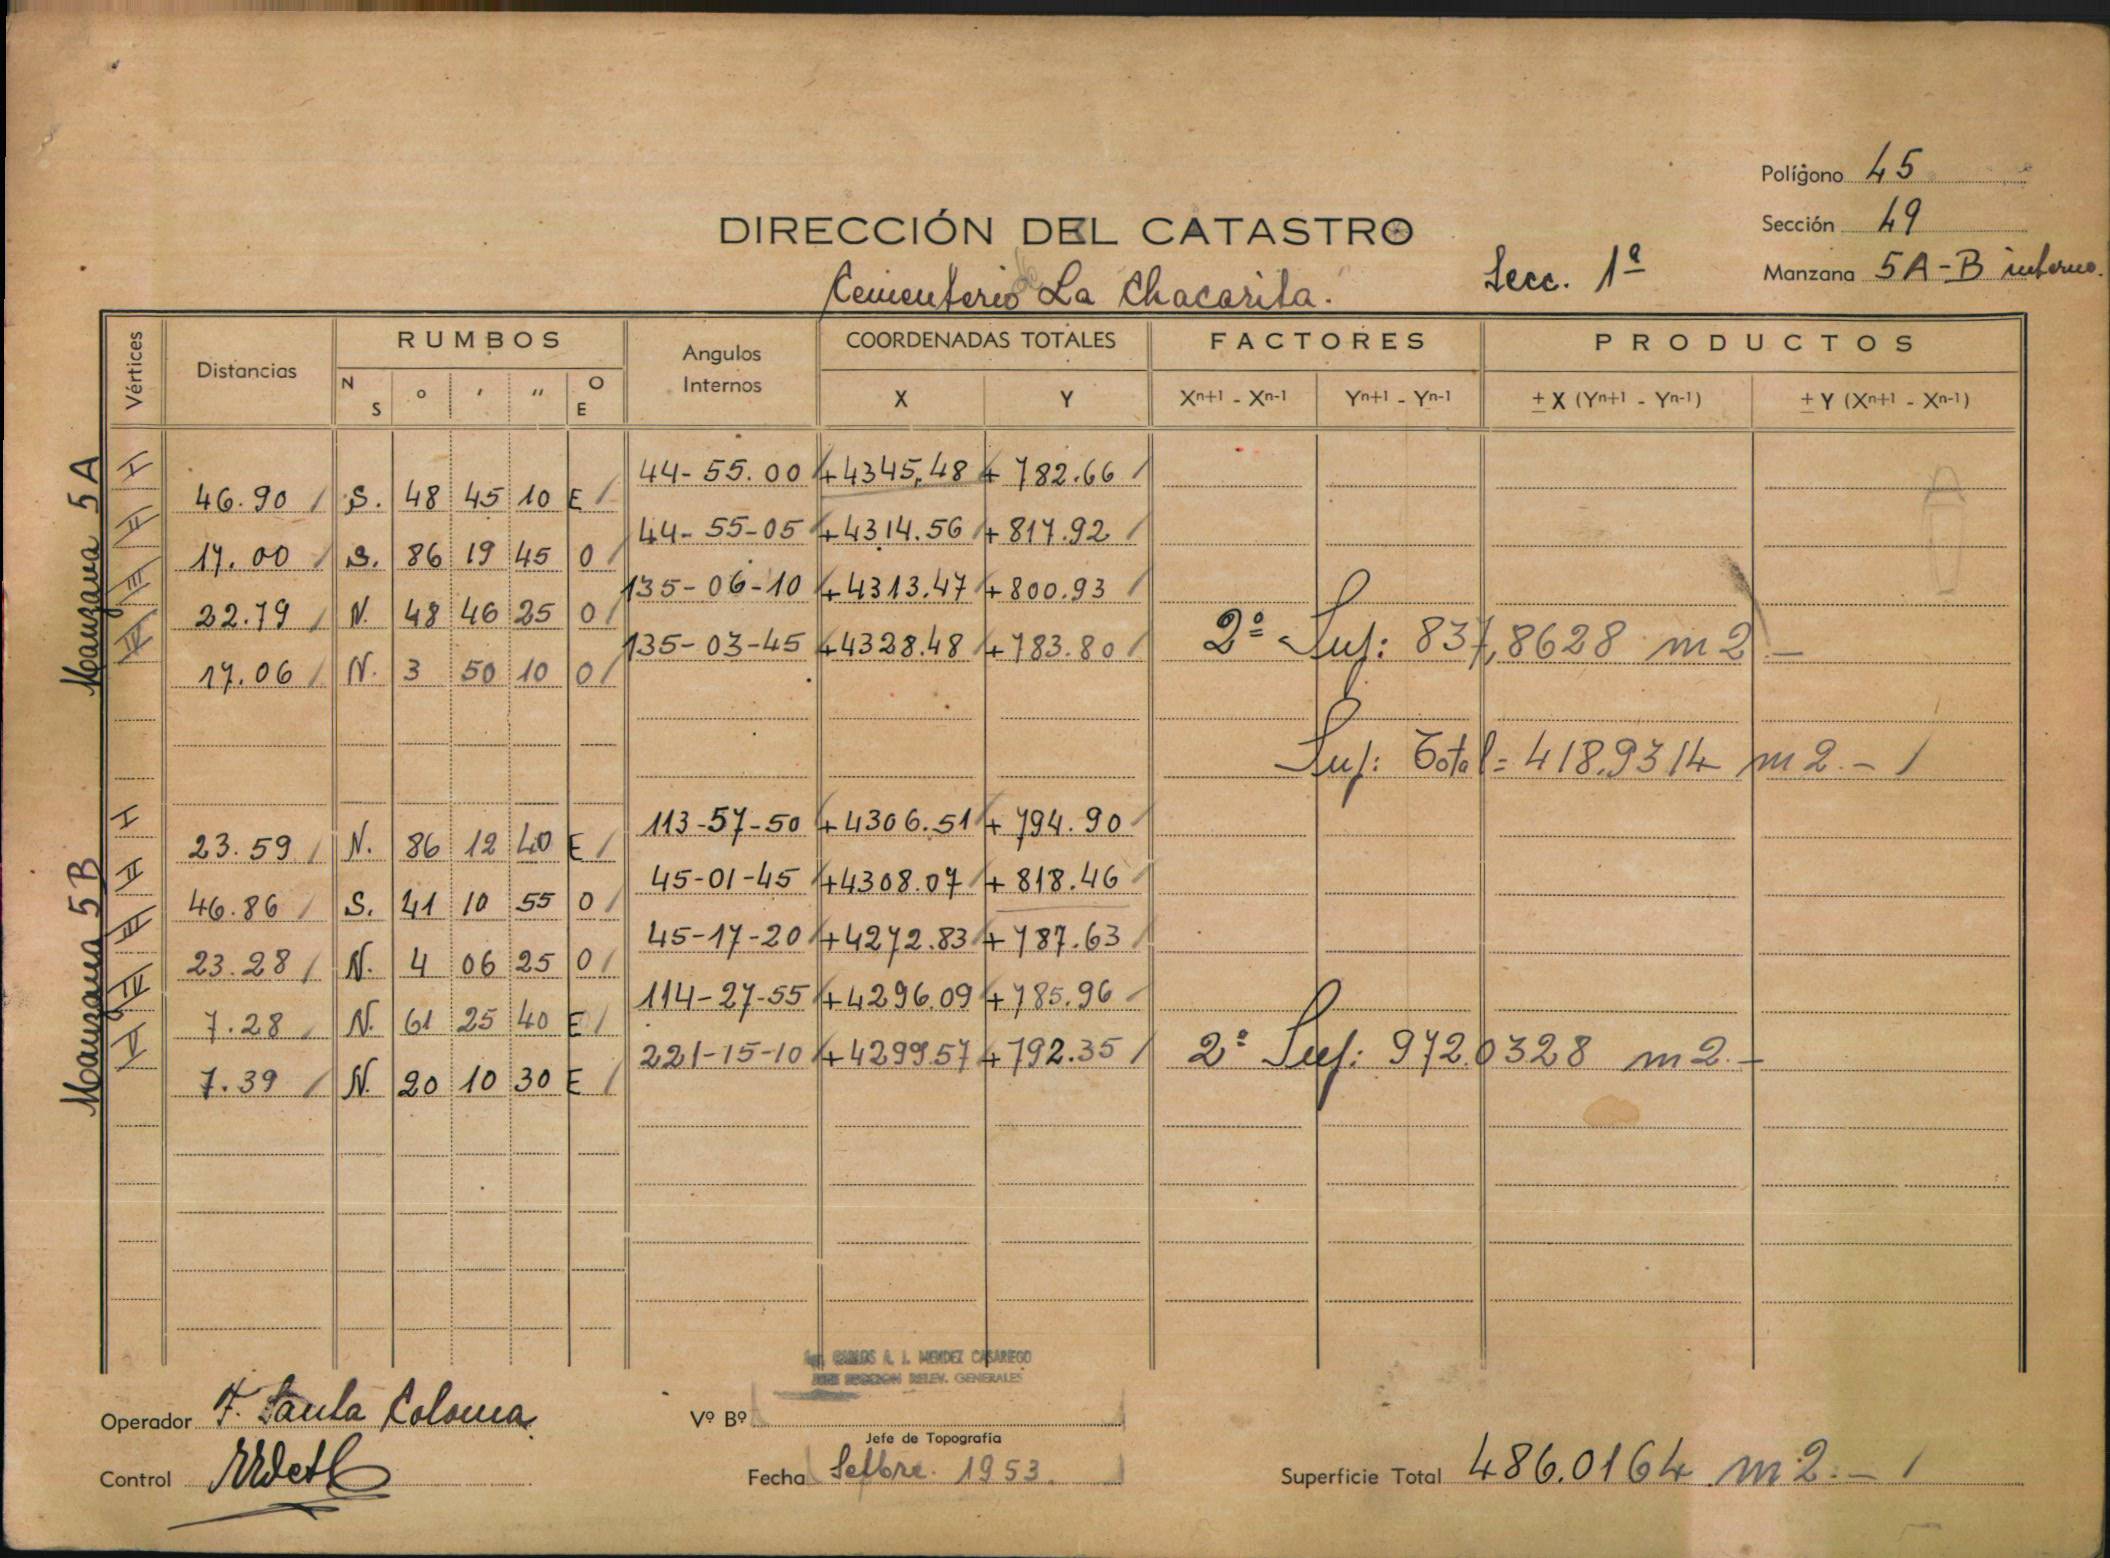 Polígono 45
DIRECCIÓN DEL CATASTRO
Sección 49
Cementerio de La Chacarita. Secc. 1ª
Manzana 5A-B interno.
Vértices Distancias RUMBOS Angulos Internos COORDENADAS TOTALES FACTORES PRODUCTOS
N S ° ' " O E X Y Xn+1 - Xn-1 Yn+1 - Yn-1 ± X (Yn+1 - Yn-1) ± Y (Xn+1 - Xn-1)
Manzana 5A
I 44-55.00 +4345,48 + 782.66
46.90 S. 48 45 10 E
II 44-55-05 +4314.56 + 817.92
17.00 S. 86 19 45 O
III 135-06-10 +4313.47 +800.93
22.79 N. 48 46 25 O
IV 135-03-45 +4328.48 +783.80 2ª Sup: 837,8628 m2 -
17.06 N. 3 50 10 O
Sup: Total = 418.9314 m2.-
Manzana 5B
I 113-57-50 +4306.51 + 794.90
23.59 N. 86 12 40 E
II 45-01-45 +4308.07 + 818.46
46.86 S. 41 10 55 O
III 45-17-20 +4272.83 +787.63
23.28 N. 4 06 25 O
IV 114-27-55 +4296.09 +785.96
7.28 N. 61 25 40 E
V 221-15-10 +4299.57 +792.35 2ª Sup: 972.0328 m2.-
7.39 N. 20 10 30 E
Ing. CARLOS A. J. MENDEZ CASAREGO
JEFE SECCION RELEV. GENERALES
Operador F. Santa Coloma.
Vº Bº
Jefe de Topografía
Control
Fecha Setbre. 1953.
Superficie Total 486.0164 m2.-